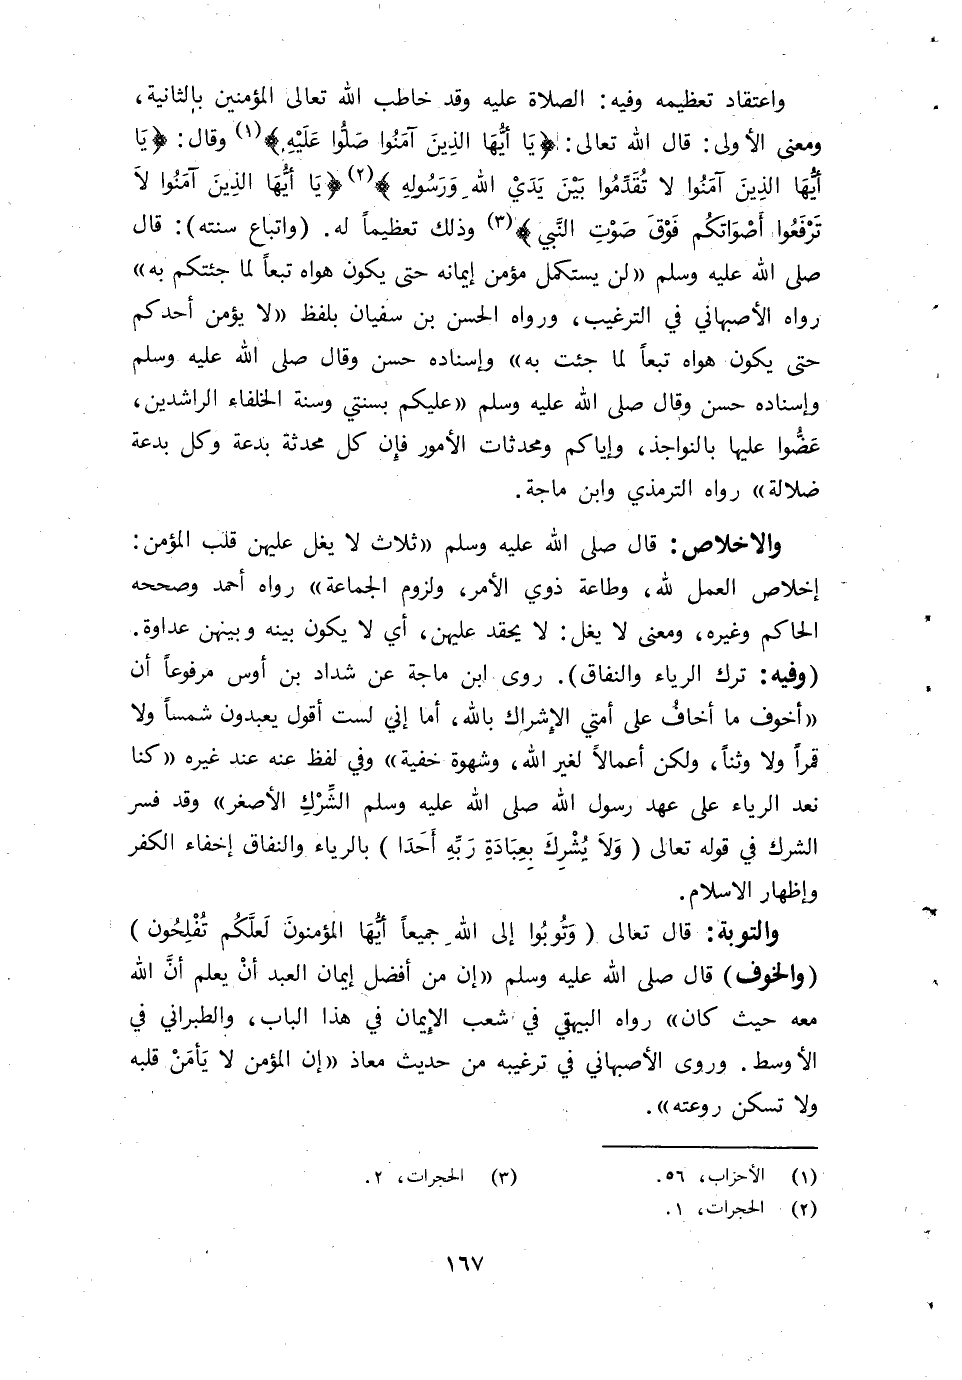 واعتقاد تعظيمه وفيه: الصلاة عليه وقد خاطب الله تعالى المؤمنين بالثانية،
ومعنى الأولى: قال الله تعالى: ﴿يَا أَيُّهَا الذِينَ آمَنُوا صَلُّوا عَلَيْهِ﴾(١) وقال: ﴿يَا
أَيُّهَا الذِينَ آمَنُوا لا تُقَدِّمُوا بَيْنَ يَدَيْ اللهِ وَرَسُولِهِ ﴾(٢) ﴿يَا أَيُّهَا الذِينَ آمَنُوا لاَ
تَرْفَعُوا أَصْوَاتَكُم فَوْقَ صَوْتِ النَّبي﴾(٣) وذلك تعظيماً له. (واتباع سنته): قال
صلى الله عليه وسلم «لن يستكمل مؤمن إيمانه حتى يكون هواه تبعاً لما جئتكم به»
رواه الأصبهاني في الترغيب، ورواه الحسن بن سفيان بلفظ «لا يؤمن أحدكم
حتى يكون هواه تبعاً لما جئت به» وإسناده حسن وقال صلى الله عليه وسلم
وإسناده حسن وقال صلى الله عليه وسلم «عليكم بسنتي وسنة الخلفاء الراشدين،
عَضُّوا عليها بالنواجذ، وإياكم ومحدثات الأمور فإن كل محدثة بدعة وكل بدعة
ضلالة» رواه الترمذي وابن ماجة.
والاخلاص: قال صلى الله عليه وسلم «ثلاث لا يغل عليهن قلب المؤمن:
إخلاص العمل لله، وطاعة ذوي الأمر، ولزوم الجماعة» رواه أحمد وصححه
الحاكم وغيره، ومعنى لا يغل: لا يحقد عليهن، أي لا يكون بينه وبينهن عداوة.
(وفيه: ترك الرياء والنفاق). روى ابن ماجة عن شداد بن أوس مرفوعاً أن
«أخوف ما أخافُ على أمتي الإشراك بالله، أما إني لست أقول يعبدون شمساً ولا
قمراً ولا وثناً، ولكن أعمالاً لغير الله، وشهوة خفية» وفي لفظ عنه عند غيره «كنا
نعد الرياء على عهد رسول الله صلى الله عليه وسلم الشِّرْكِ الأصغر» وقد فسر
الشرك في قوله تعالى ( وَلاَ يُشْرِكَ بِعِبَادَةِ رَبِّهِ أَحَدَا ) بالرياء والنفاق إخفاء الكفر
وإظهار الاسلام.
والتوبة: قال تعالى ( وَتُوبُوا إلى اللهِ جميعاً أيُّهَا المؤمنونَ لَعلَّكُم تُفْلِحُون )
(والخوف) قال صلى الله عليه وسلم «إن من أفضل إيمان العبد أنْ يعلم أنَّ الله
معه حيث كان» رواه البيهقي في شعب الإيمان في هذا الباب، والطبراني في
الأوسط. وروى الأصبهاني في ترغيبه من حديث معاذ «إن المؤمن لا يَأمَنْ قلبه
ولا تسكن روعته».
(١) الأحزاب، ٥٦.
(٣) الحجرات، ٢.
(٢) الحجرات، ١.
١٦٧